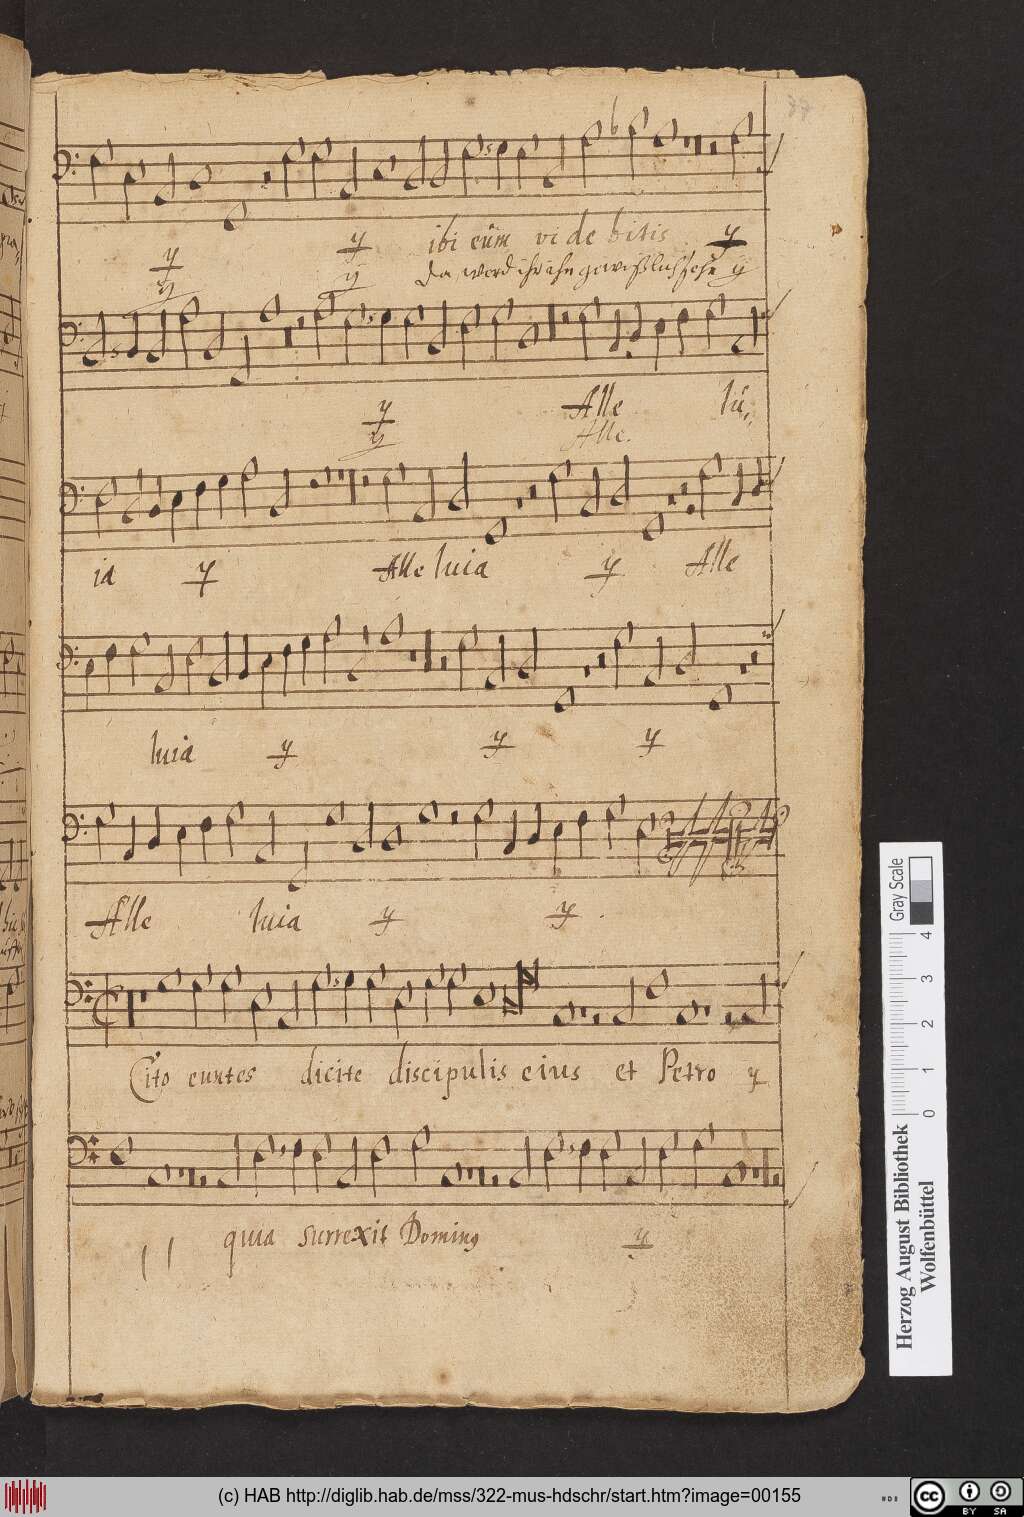 ÿ ÿ ibi eum videbitis ÿ
ÿ ÿ da werd ihr ihn gewißlich sehn ÿ
ÿ Alle lu
ÿ Alle.
ia ÿ Alleluia ÿ Alle
luia ÿ ÿ ÿ
Alle luia ÿ ÿ
Cito euntes dicite discipulis eius et Petro ÿ
quia surrexit Dominꝰ ÿ
Gray Scale
0 1 2 3 4
Herzog August Bibliothek
Wolfenbüttel
(c) HAB http://diglib.hab.de/mss/322-mus-hdschr/start.htm?image=00155
cc BY SA